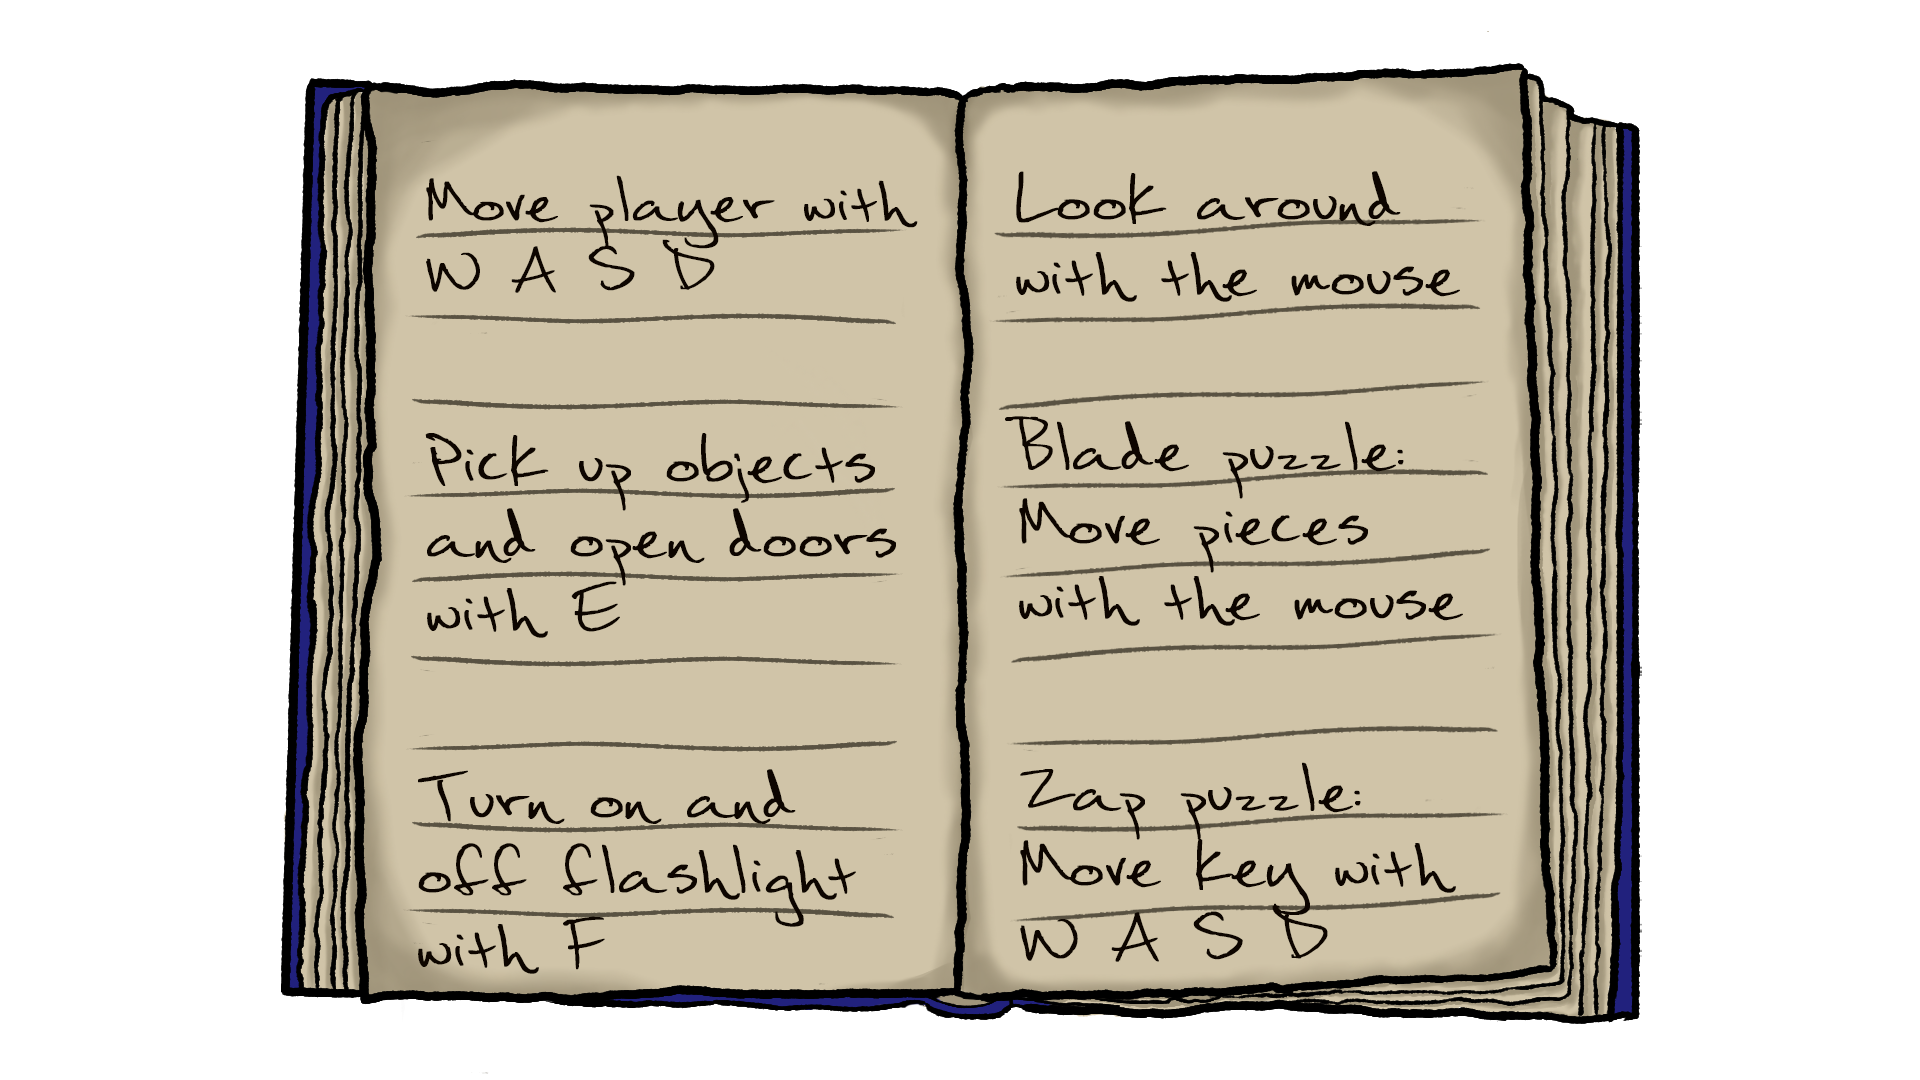 Move player with
W A S D
Pick up objects
and open doors
with E
Turn on and
off flashlight
with F
Look around
with the mouse
Blade puzzle:
Move pieces
with the mouse
Zap puzzle:
Move key with
W A S D